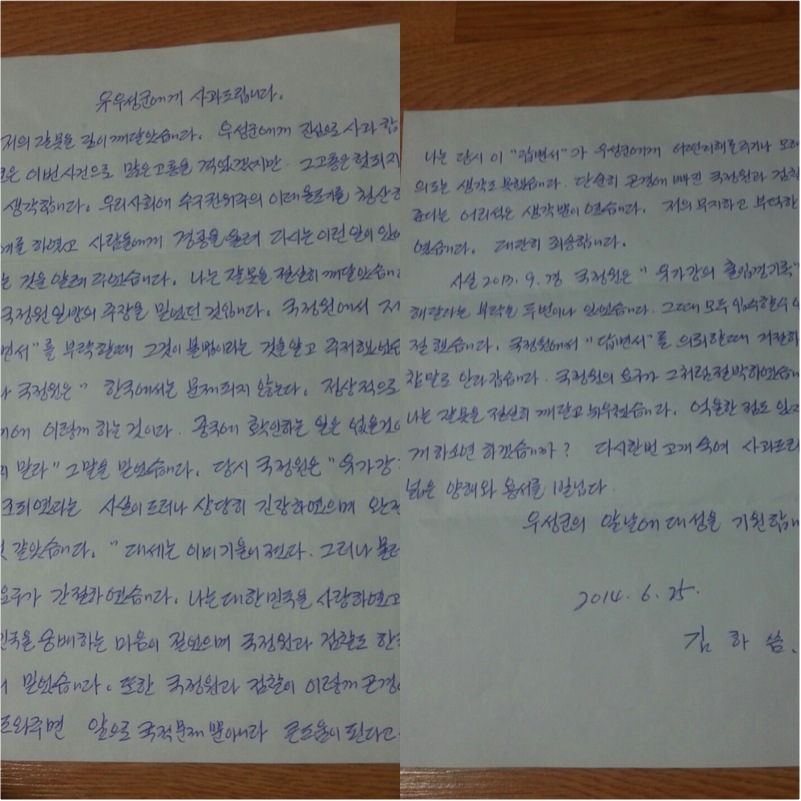 유우성군에게 사과드립니다.
저의 잘못을 깊이 깨달았습니다. 우성군에게 진심으로 사과 합
이번사건으로 많은고통을 겪었겠지만 그고통은 헛되지
생각합니다. 우리사회에 수구권위주의 이데올로기를 청산하
를 하였고 사람들에게 경종을 울려 다시는 이런 일이 있어
는 것을 알려 주었습니다. 나는 잘못을 절실히 깨달았습니
국정원 일방의 주장을 믿었던 것입니다. 국정원에서 저
변서"를 부탁할때 그것이 불법이라는 것을 알고 주저했었습
나 국정원은 " 한국에서는 문제되지 않는다. 정상적으로
기에 이렇게 하는 것이다. 중국에 확인하는 일은 없을것이
지 말라" 그말을 믿었습니다. 당시 국정원은 " 유가강
조되였다는 사실이 드러나 상당히 긴장하였으며 완전
것 같았습니다. "대세는 이미 기울어졌다. 그러나 물러
요구가 간절하였습니다. 나는 대한민국을 사랑하였고
민국을 숭배하는 마음이 깊었으며 국정원과 검찰도 한국
믿었습니다. 또한 국정원과 검찰이 이렇게 곤경에
도와주면 앞으로 국적문제 뿐아니라 큰도움이 된다고
나는 당시 이 "답변서"가 우성군에게 어떤피해를 주거나 모해
의도는 생각도 못했습니다. 단순히 곤경에 빠진 국정원과 검찰
준다는 어리석은 생각뿐이였습니다. 저의 무지하고 부덕한
였습니다. 대단히 죄송합니다.
사실 2013. 9. 경 국정원은 " 유가강의 출입경기록"
해달라는 부탁을 두번이나 있었습니다. 그때 모두 입수할수 없
절했습니다. 국정원에서 "답변서"를 의뢰할때 거절하
참말로 안타깝습니다. 국정원의 요구가 그처럼 절박하였습니
나는 잘못을 절실히 깨닫고 뉘우쳤습니다. 억울한 점도 있지
게 하소연 하겠습니까? 다시한번 고개 숙여 사과드리
넓은 양해와 용서를 빕니다.
우성군의 앞날에 대성을 기원합니
2014. 6. 25.
김 하